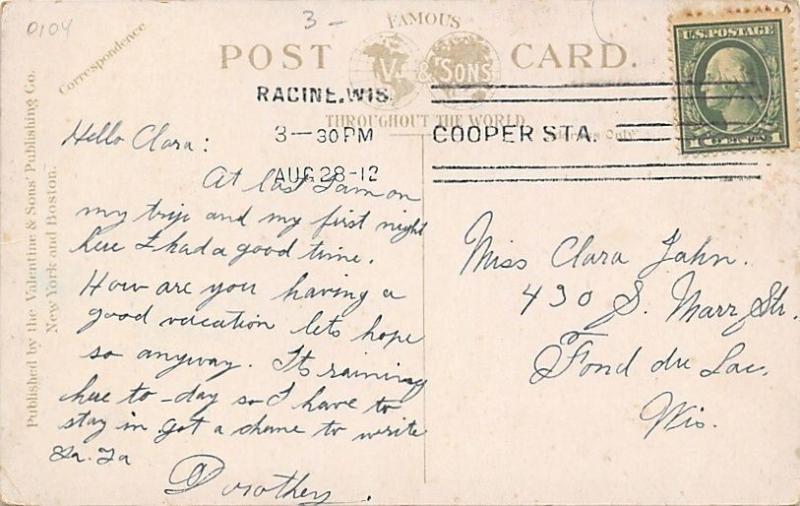 0104
3-
FAMOUS
POST CARD.
V. & SONS
THROUGHOUT THE WORLD
Correspondence
Published by the Valentine & Sons Publishing Co.
New York and Boston.
RACINE, WIS.
3-30 PM
AUG 28-12
COOPER STA.
U.S. POSTAGE
1 CENT 1
Hello Clara:
At last I am on
my trip and my first night
here I had a good time.
How are you having a
good vacation lets hope
so anyway. Its raining
here to-day so I have to
stay in got a chanc to write
Ha. Ha
Dorothey.
Miss Clara Jahn.
490 S. Marr Str.
Fond du Lac.
Wis.